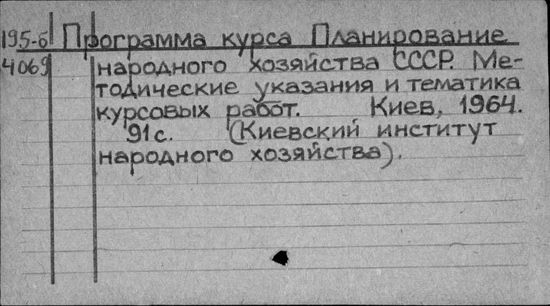 195-б Программа курса Планирование
4069 народного хозяйства СССР. Ме-
тодические указания и тематика
курсовых работ. Киев, 1964.
91с. (Киевский институт
народного хозяйства).